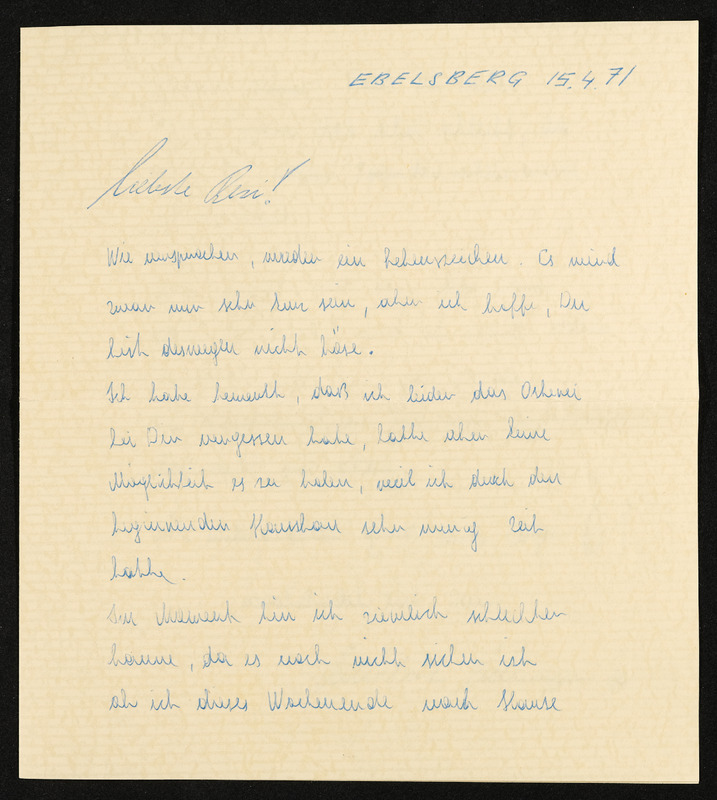 EBELSBERG 15.4.71
Liebste Resi!
Wie versprochen, wieder ein Lebenszeichen. Es wird
zwar nur sehr kurz sein, aber ich hoffe, Du
bist deswegen nicht böse.
Ich habe bemerkt, daß ich leider das Osterei
bei Dir vergessen habe, hatte aber keine
Möglichkeit es zu holen, weil ich durch den
beginnenden Hausbau sehr wenig Zeit
hatte.
Im Moment bin ich ziemlich schlechter
Laune, da es noch nicht sicher ist
ob ich dieses Wochenende nach Hause